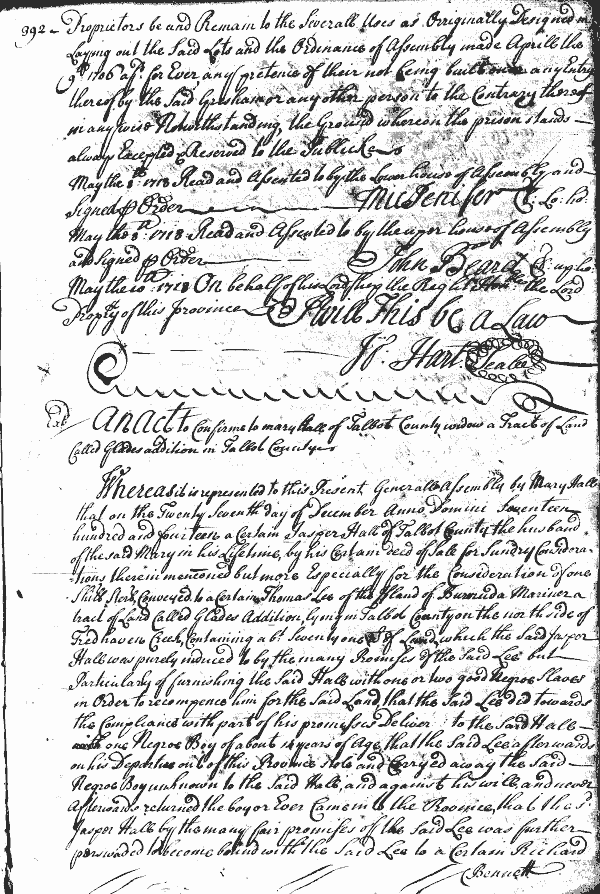 392 - Proprietors be and Remain to the Severall Uses as Originally Designed in
Laying out the Said Lots and the Ordinance of Assembly made Aprill the
9th 1706 afd. for Ever any pretence of their not being built on or any Entry
thereof by the Said Gresham or any other person to the Contrary thereof
in any wise Notwithstanding, the Ground whereon the prison stands -
always Excepted & Reserved to the Publick
May the 8th: 1718 Read and Assented to by the Lower house of Assembly and -
Signed p Order Mic Jenifer Cl: Lo: ho:
May the 8th: 1718. Read and Assented to by the uper house of Assembly
and Signed p Order John Beard Cl: up ho:
May the 10th: 1718 On behalf of his Lordship the Right Honble the Lord
Proprty of this Province I will This be a Law
Jo. Hart Seale
An Act to Confirme to mary Hall of Talbot County widow a Tract of Land
Called Glades addition in Talbot County
Whereas it is represented to this Present Generall Assembly by Mary Hall
that on the Twenty Seventh day of December Anno Domini Seventeen
hundred and fourteen a Certain Jasper Hall of Talbot County the husband
of the said Mary in his Lifetime, by his Certain deed of Sale for Sundry Considera-
tions therein mentioned but more Especially for the Consideration of one
Shill: Sterl: Conveyed to a Certain Thomas Lee of the Island of Burmuda Mariner a
tract of Land Called Glades Addition, lying in Talbot County on the north side of
Tredhaven Creek, Containing abt. Seventy one As of Land, which the said Jasper
Hall was purely induced to by the many Promises of the Said Lee but
Particularly of furnishing the Said Hall with one or two good Negroe Slaves
in Order to recompence him for the Said Land, that the Said Lee did towards
the Compliance with part of his promises Deliver to the Said Hall -
one Negroe Boy of about 14 years of Age, that the Said Lee afterwards
on his Departure out of this Province Stole and Carryed away the Said -
Negroe Boy unknown to the Said Hall, and against his will, and never
Afterwards returned the boy or Ever Came into the Province, that the sd
Jasper Hall by the many fair promises of the Said Lee was further -
perswaded to become bound with the Said Lee to a Certain Richard
Bennett